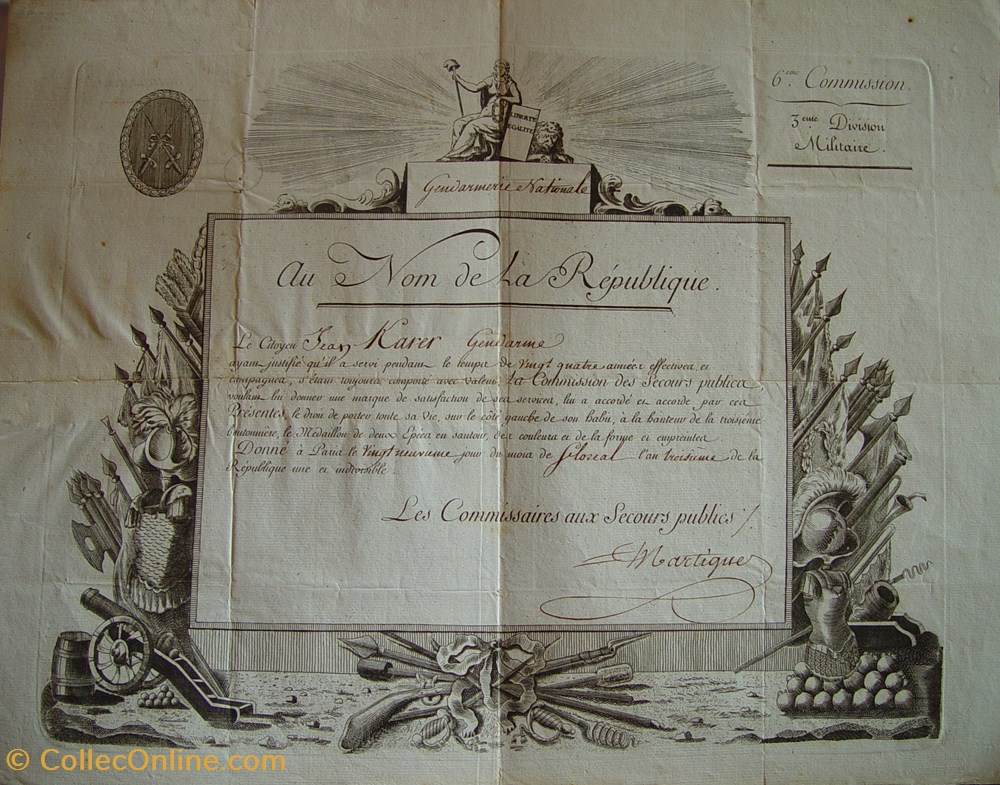 6.eme Commission.
3.eme Division
Militaire.
LIBERTÉ
EGALITÉ
Gendarmerie Nationale
Au Nom de La République.
Le Citoyen Jean Karer Gendarme
ayant justifié qu'il a servi pendant le temps de Vingt quatre années effectives, et
campagnes, s'étant toujours comporté avec Valeur, La Commission des Secours publics
voulant lui donner une marque de satisfaction de ses services, lui a accordé et accorde par ces
Présentes, le droit de porter toute sa Vie, sur le côté gauche de son habit, à la hauteur de la troisième
boutonnière, le Médaillon de deux Epées en sautoir, des couleurs et de la forme et empreintes
Donné à Paris le Vingt neuvieme jour du mois de floreal l'an troisieme de la
République une et indivisible.
Les Commissaires aux Secours publics
Martique
© CollecOnline.com